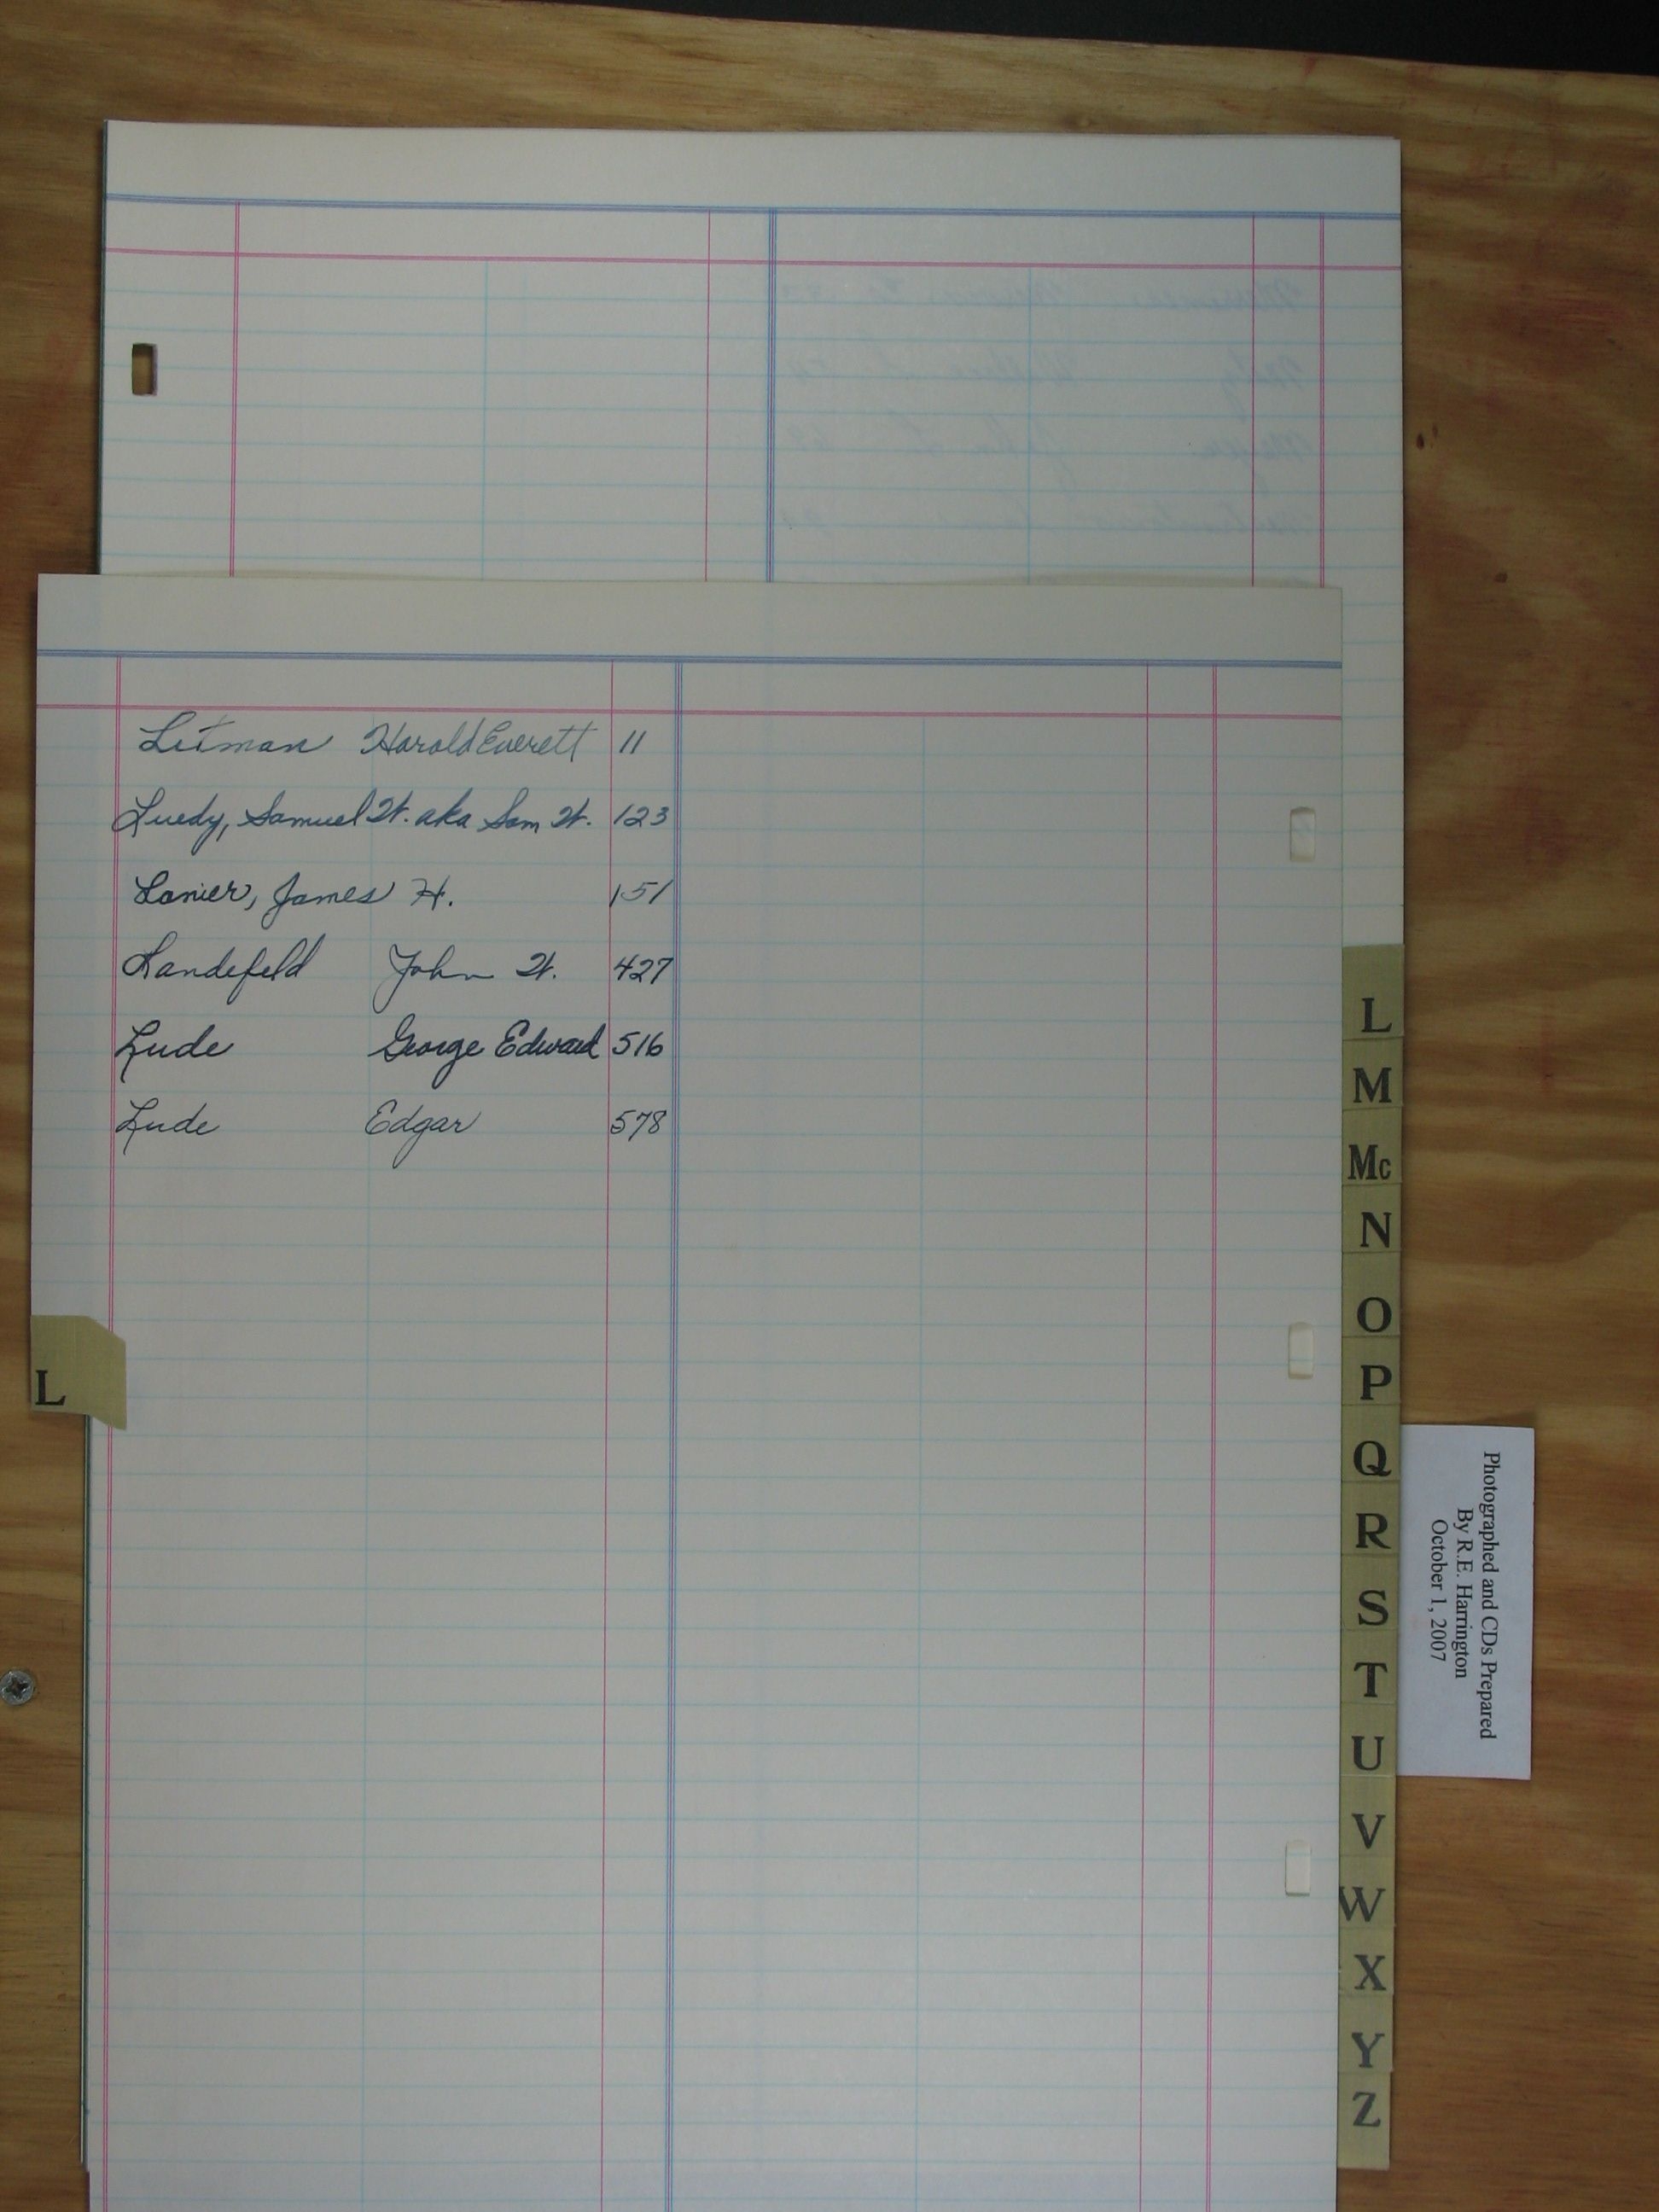 Litman Harold Everett 11
Luedy, Samuel W. aka Sam W. 123
Lanier, James H. 151
Landefeld John W. 427
Lude George Edward 516
Lude Edgar 578
L
L
M
Mc
N
O
P
Q
R
S
T
U
V
W
X
Y
Z
Photographed and CDs Prepared
By R.E. Harrington
October 1, 2007